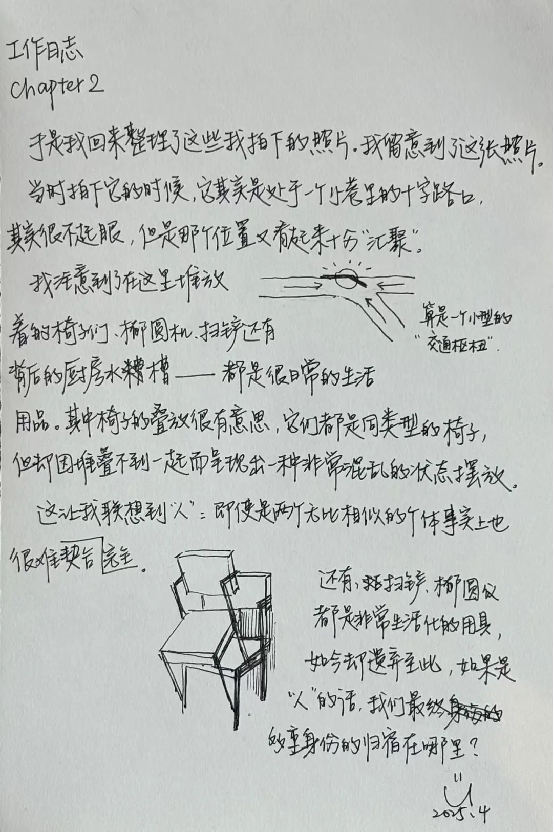 工作日志
Chapter 2
于是我回来整理了这些我拍下的照片。我留意到了这张照片。
当时拍下它的时候，它其实是处于一个小巷里的十字路口，
其实很不起眼，但是那个位置又看起来十分“汇聚”。
我注意到了在这里堆放
算是一个小型的
“交通枢纽”.
着的椅子们、椭圆机、扫铲还有
背后的厨房水槽——都是很日常的生活
用品。其中椅子的叠放很有意思，它们都是同类型的椅子，
但却因堆叠不到一起而呈现出一种非常混乱的状态摆放。
这让我联想到“人”：即使是两个无比相似的个体事实上也
很难完全契合。
还有，扫铲、椭圆仪
都是非常生活化的用具，
如今却遗弃至此，如果是
“人”的话，我们最终
的身份的归宿在哪里？
2025.4